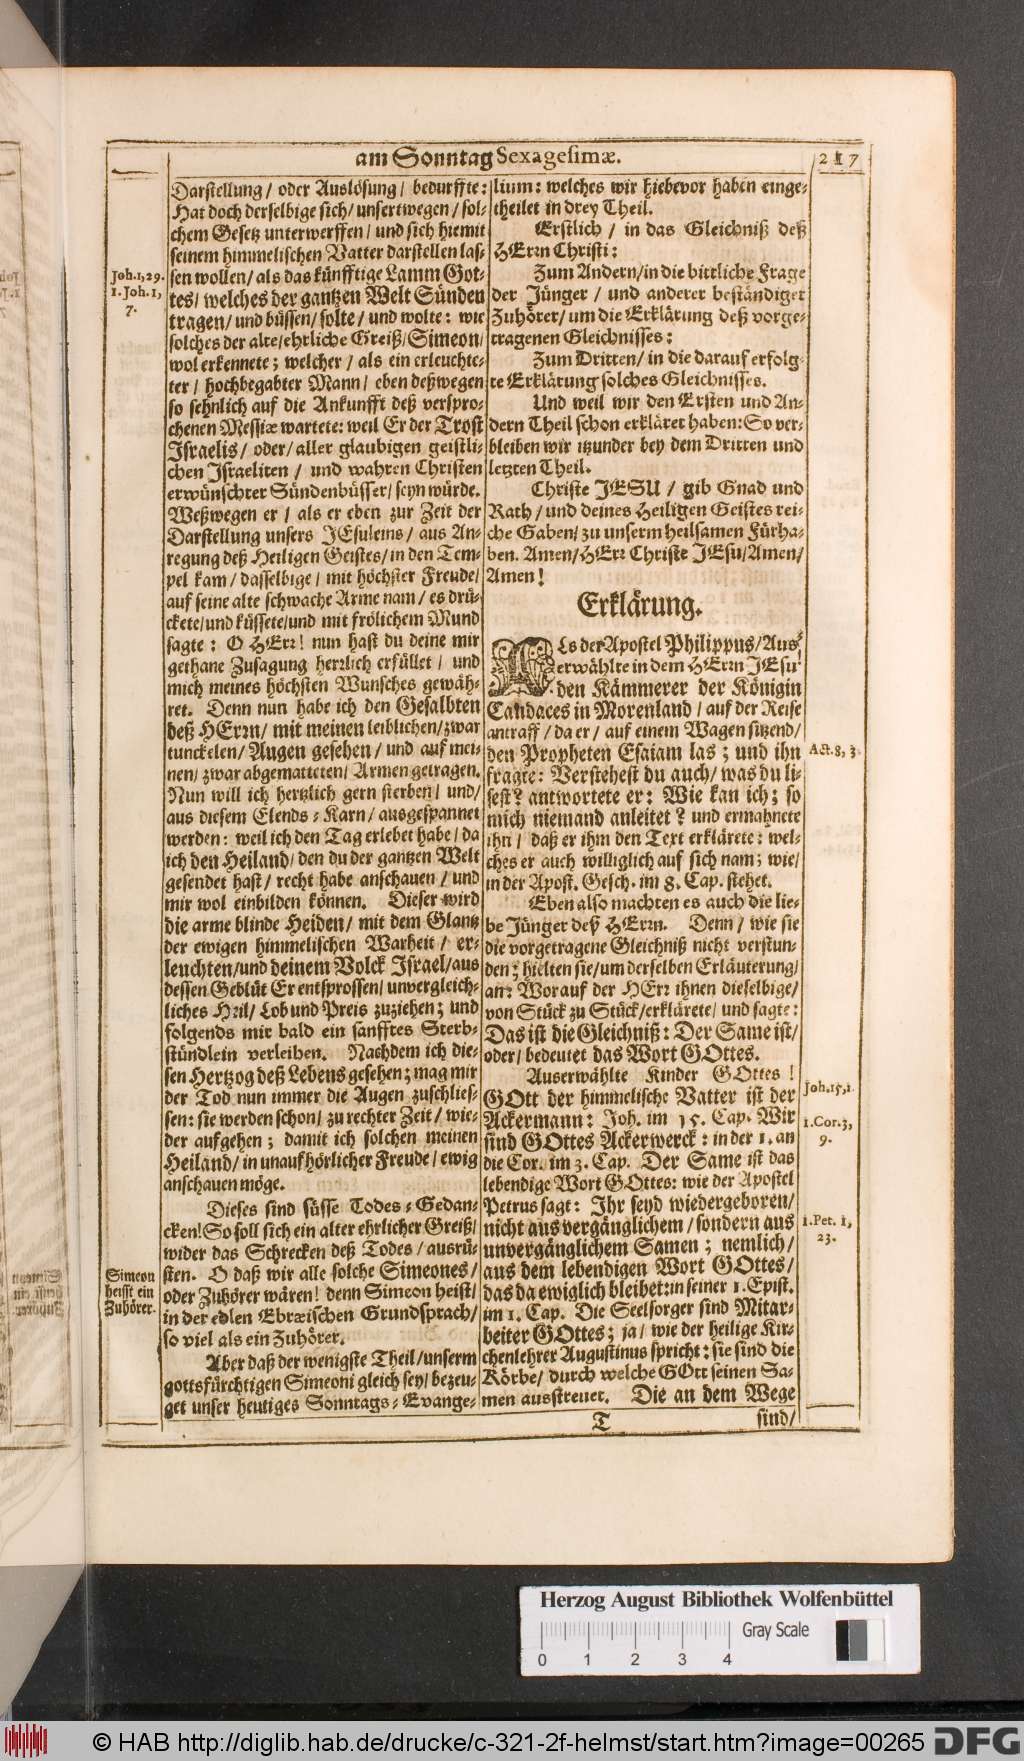 am Sonntag Sexagesimæ.
217
Darstellung / oder Auslösung / bedurffte:
Hat doch derselbige sich / unsertwegen / sol-
chem Gesetz unterwerffen / und sich hiemit
seinem himmelischen Vatter darstellen las-
sen wollen / als das künfftige Lamm Got-
tes / welches der gantzen Welt Sünden
tragen / und büssen / solte / und wolte: wie
solches der alte / ehrliche Greiß / Simeon /
wol erkennete; welcher / als ein erleuchte-
ter / hochbegabter Mann / eben deßwegen
so sehnlich auf die Ankunfft deß verspro-
chenen Messiæ wartete: weil Er der Trost
Israelis / oder / aller glaubigen geistli-
chen Israeliten / und wahren Christen
erwünschter Sündenbüsser / seyn würde.
Weßwegen er / als er eben zur Zeit der
Darstellung unsers JEsuleins / aus An-
regung deß Heiligen Geistes / in den Tem-
pel kam / dasselbige / mit höchster Freude /
auf seine alte schwache Arme nam / es drü-
ckete / und küssete / und mit frölichem Mund
sagte: O HErr! nun hast du deine mir
gethane Zusagung herrlich erfüllet / und
mich meines höchsten Wunsches gewäh-
ret. Denn nun habe ich den Gesalbten
deß HErrn / mit meinen leiblichen / zwar
tunckelen / Augen gesehen / und auf mei-
nen / zwar abgematteten / Armen getragen.
Nun will ich hertzlich gern sterben / und /
aus diesem Elends-Karn / ausgespannet
werden: weil ich den Tag erlebet habe / da
ich den Heiland / den du der gantzen Welt
gesendet hast / recht habe anschauen / und
mir wol einbilden können. Dieser wird
die arme blinde Heiden / mit dem Glantz
der ewigen himmelischen Warheit / er-
leuchten / und deinem Volck Israel / aus
dessen Geblüt Er entsprossen / unvergleich-
liches Heil / Lob und Preis zuziehen; und
folgends mir bald ein sanfftes Sterb-
stündlein verleihen. Nachdem ich die-
sen Hertzog deß Lebens gesehen; mag mir
der Tod nun immer die Augen zuschlies-
sen: sie werden schon / zu rechter Zeit / wie-
der aufgehen; damit ich solchen meinen
Heiland / in unaufhörlicher Freude / ewig
anschauen möge.
Dieses sind süsse Todes-Gedan-
cken! So soll sich ein alter ehrlicher Greiß /
wider das Schrecken deß Todes / ausrü-
sten. O daß wir alle solche Simeones /
oder Zuhörer wären! denn Simeon heist /
in der edlen Ebræischen Grundsprach /
so viel als ein Zuhörer.
Aber daß der wenigste Theil / unserm
gottsfürchtigen Simeoni gleich sey / bezeu-
get unser heutiges Sonntags-Evange-
Joh. 1, 29.
1. Joh. 1,
7.
Simeon
heisst ein
Zuhörer.
lium: welches wir hiebevor haben einge-
theilet in drey Theil.
Erstlich / in das Gleichniß deß
HErrn Christi:
Zum Andern / in die bittliche Frage
der Jünger / und anderer beständiger
Zuhörer / um die Erklärung deß vorge-
tragenen Gleichnisses:
Zum Dritten / in die darauf erfolg-
te Erklärung solches Gleichnisses.
Und weil wir den Ersten und An-
dern Theil schon erkläret haben: So ver-
bleiben wir itzunder bey dem Dritten und
letzten Theil.
Christe JESU / gib Gnad und
Rath / und deines Heiligen Geistes rei-
che Gaben / zu unserm heilsamen Fürha-
ben. Amen / HErr Christe JEsu / Amen /
Amen!
Erklärung.
ALs der Apostel Philippus / Aus-
erwählte in dem HErrn JEsu!
den Kämmerer der Königin
Candaces in Morenland / auf der Reise
antraff / da er / auf einem Wagen sitzend /
den Propheten Esaiam las; und ihn
fragte: Verstehest du auch / was du li-
sest? antwortete er: Wie kan ich; so
mich niemand anleitet? und ermahnete
ihn / daß er ihm den Text erklärete: wel-
ches er auch williglich auf sich nam; wie /
in der Apost. Gesch. im 8. Cap. stehet.
Eben also machten es auch die lie-
be Jünger deß HErrn. Denn / wie sie
die vorgetragene Gleichniß nicht verstun-
den; hielten sie / um derselben Erläuterung /
an: Worauf der HErr ihnen dieselbige /
von Stück zu Stück / erklärete / und sagte:
Das ist die Gleichniß: Der Same ist /
oder / bedeutet das Wort GOttes.
Auserwählte Kinder GOttes!
GOtt der himmelische Vatter ist der
Ackermann: Joh. im 15. Cap. Wir
sind GOttes Ackerwerck: in der 1. an
die Cor. im 3. Cap. Der Same ist das
lebendige Wort GOttes: wie der Apostel
Petrus sagt: Ihr seyd wiedergeboren /
nicht aus vergänglichem / sondern aus
unvergänglichem Samen; nemlich /
aus dem lebendigen Wort GOttes /
das da ewiglich bleibet: in seiner 1. Epist.
im 1. Cap. Die Seelsorger sind Mitar-
beiter GOttes; ja / wie der heilige Kir-
chenlehrer Augustinus spricht: sie sind die
Körbe / durch welche GOtt seinen Sa-
men ausstreuet. Die an dem Wege
T
sind /
Act. 8, 3.
Joh. 15, 1.
1. Cor. 3,
9.
1. Pet. 1,
23.
Herzog August Bibliothek Wolfenbüttel
Gray Scale
0 1 2 3 4
© HAB http://diglib.hab.de/drucke/c-321-2f-helmst/start.htm?image=00265
DFG